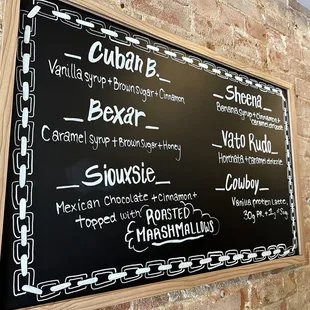 Cuban B.
Vanilla syrup + Brown Sugar + Cinnamon
Bexar
Caramel Syrup + Brown Sugar + Honey
Siouxsie
Mexican Chocolate + Cinnamon +
topped with ROASTED
MARSHMALLOWS
Sheena
Banana syrup + Cinnamon +
caramel drizzle
Vato Rudo
Horchata + caramel drizzle
Cowboy
Vanilla protein Latte,
30g PR. + 1g Sug